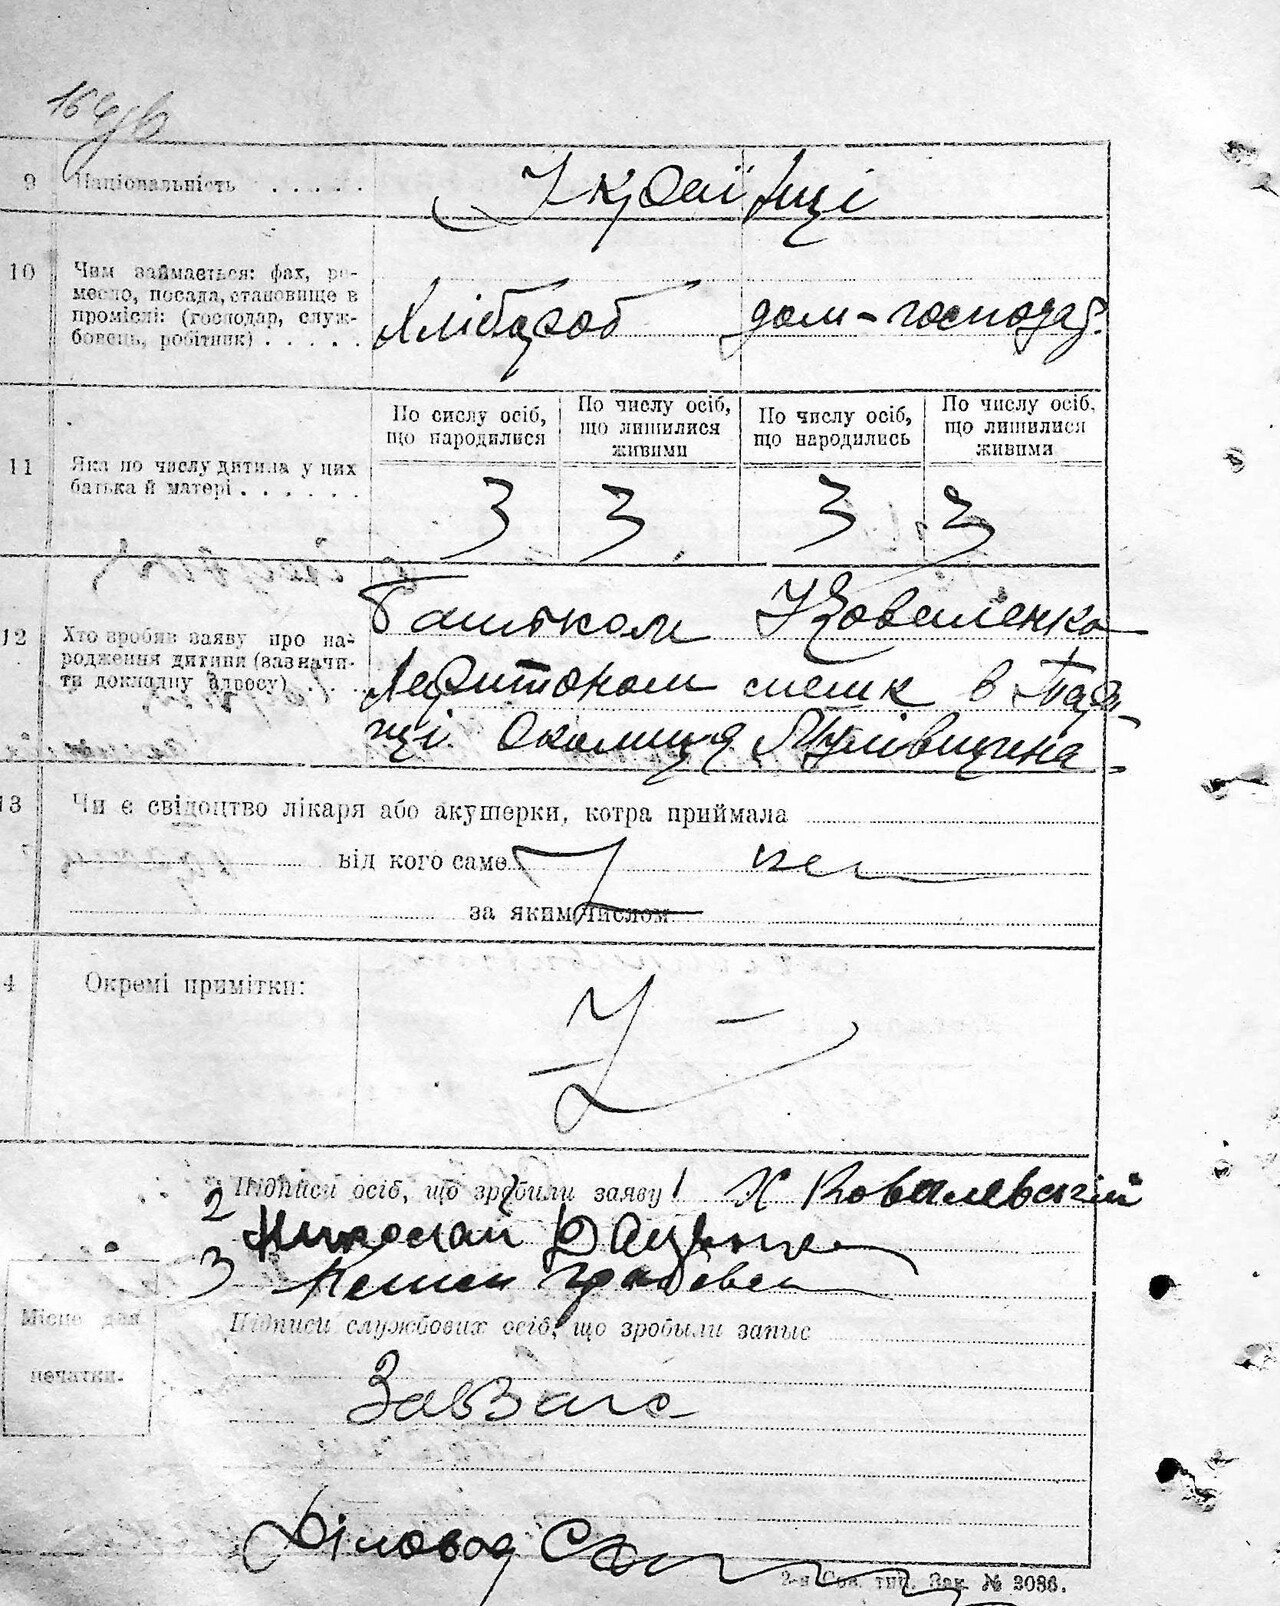 9 Національність . . . . . Українці
10 Чим займається: фах, ре-
месло, посада, становище в
промислі: (господар, служ-
бовець, робітник) . . . . . Хлібороб дом-господар.
По числу осіб, що народилися
По числу осіб, що лишилися живими
По числу осіб, що народились
По числу осіб, що лишилися живими
11 Яка по числу дитина у цих
батька й матері . . . . . .
3 3 3 3
12 Хто вробив заяву про на-
родження дитини (зазначи-
ти докладну адресу) . . .
Батьком
Харитоном мешк в
ці Околиця
13 Чи є свідоцтво лікаря або акушерки, котра приймала
від кого саме
за яким числом
4 Окремі примітки:
Підписи осіб, що зробили заяву 1 Х Ковалевський
2 Николай
3
Місце для
печатки.
Підписи службових осіб, що зробыли запыс
ЗавЗагс
Діловод
2-я Сов. тип. Зак. № 3086.